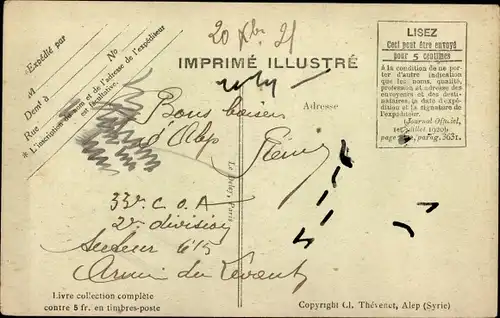 Expédié par
M
Demt à
Rue No
* L'inscription du nom et de l'adresse de l'expéditeur
est facultative.
20 Xbre 21
IMPRIMÉ ILLUSTRÉ
Adresse
LISEZ
Ceci peut être envoyé
pour 5 centimes
A la condition de ne por-
ter d'autre indication
que les noms, qualité,
profession et adresse des
envoyeurs et des desti-
nataires, la date d'expé-
dition et la signature de
l'expéditeur.
(Journal Officiel,
juillet 1920,
page parag. 3631.
Bons baisers
d'Alep
33e C.O.A
2e division
Secteur 615
Armée du Levant
Le Deley, Paris
Livre collection complète
contre 5 fr. en timbres-poste
Copyright Cl. Thévenet, Alep (Syrie)